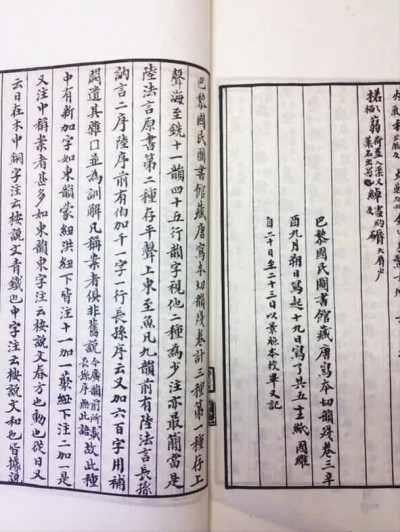 巴黎國民圖書館藏唐寫本切韻殘卷三辛
酉九月朔日寫起十九日寫了共五紙國維
自二十日至二十三日以景照本校畢又記
巴黎國民圖書館藏唐寫本切韻殘卷計三種第一種存上
聲海至銑十一韻四十五行韻字視他二種為少注亦最簡當是
陸法言原書第二種存平聲上東至魚凡九韻前有陸法言長孫
訥言二序陸序前有伯加千一字一行長孫序云又加六百字用補
闕遺其雜口並為訓解凡稱案者俱非舊說今廣韻前所載長孫序無此語故此種
中有新加字如東韻蒙紐洪紐下皆注十一加一紐下注二加一是
又注中稱案者甚多如東韻東字注云按說文春方也動也從日又
云日在木中銅字注云按說文青鐵也中字注云按說文和也皆據說